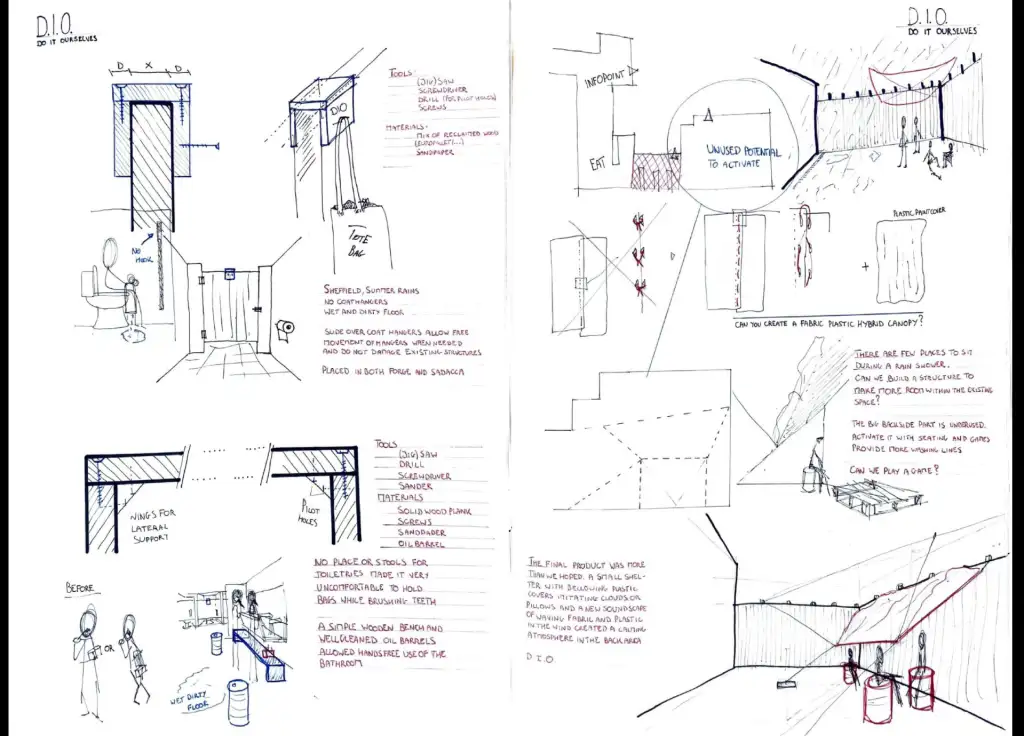 D.I.O.
DO IT OURSELVES
D X D
DIO
TOTE
BAG
NO
HOOK
TOOLS:
(JIG)SAW
SCREWDRIVER
DRILL (FOR PILOT HOLES)
SCREWS
MATERIALS:
MIX OF RECLAIMED WOOD
(EUROPALLET...)
SANDPAPER
SHEFFIELD, SUMMER RAINS
NO COATHANGERS
WET AND DIRTY FLOOR
SLIDE OVER COAT HANGERS ALLOW FREE
MOVEMENT OF HANGERS WHEN NEEDED
AND DO NOT DAMAGE EXISTING STRUCTURES
PLACED IN BOTH FORGE AND SADACCA
WINGS FOR
LATERAL
SUPPORT
PILOT
HOLES
TOOLS
(JIG)SAW
DRILL
SCREWDRIVER
SANDER
MATERIALS
SOLID WOOD PLANK
SCREWS
SANDPAPER
OIL BARREL
BEFORE
OR
WET DIRTY
FLOOR
NO PLACE OR STOOLS FOR
TOILETRIES MADE IT VERY
UNCOMFORTABLE TO HOLD
BAGS WHILE BRUSHING TEETH
A SIMPLE WOODEN BENCH AND
WELL CLEANED OIL BARRELS
ALLOWED HANDSFREE USE OF THE
BATHROOM
D.I.O.
DO IT OURSELVES
INFOPOINT
EAT
UNUSED POTENTIAL
TO ACTIVATE
PLASTIC PAINTCOVER
+
CAN YOU CREATE A FABRIC PLASTIC HYBRID CANOPY?
THERE ARE FEW PLACES TO SIT
DURING A RAIN SHOWER.
CAN WE BUILD A STRUCTURE TO
MAKE MORE ROOM WITHIN THE EXISTING
SPACE?
THE BIG BACKSIDE PART IS UNDERUSED.
ACTIVATE IT WITH SEATING AND GAMES
PROVIDE MORE WASHING LINES
CAN WE PLAY A GAME?
THE FINAL PRODUCT WAS MORE
THAN WE HOPED. A SMALL SHEL-
TER WITH BELLOWING PLASTIC
COVERS IMITATING CLOUDS OR
PILLOWS AND A NEW SOUNDSCAPE
OF WAVING FABRIC AND PLASTIC
IN THE WIND CREATED A CALMING
ATMOSPHERE IN THE BACK AREA
D.I.O.